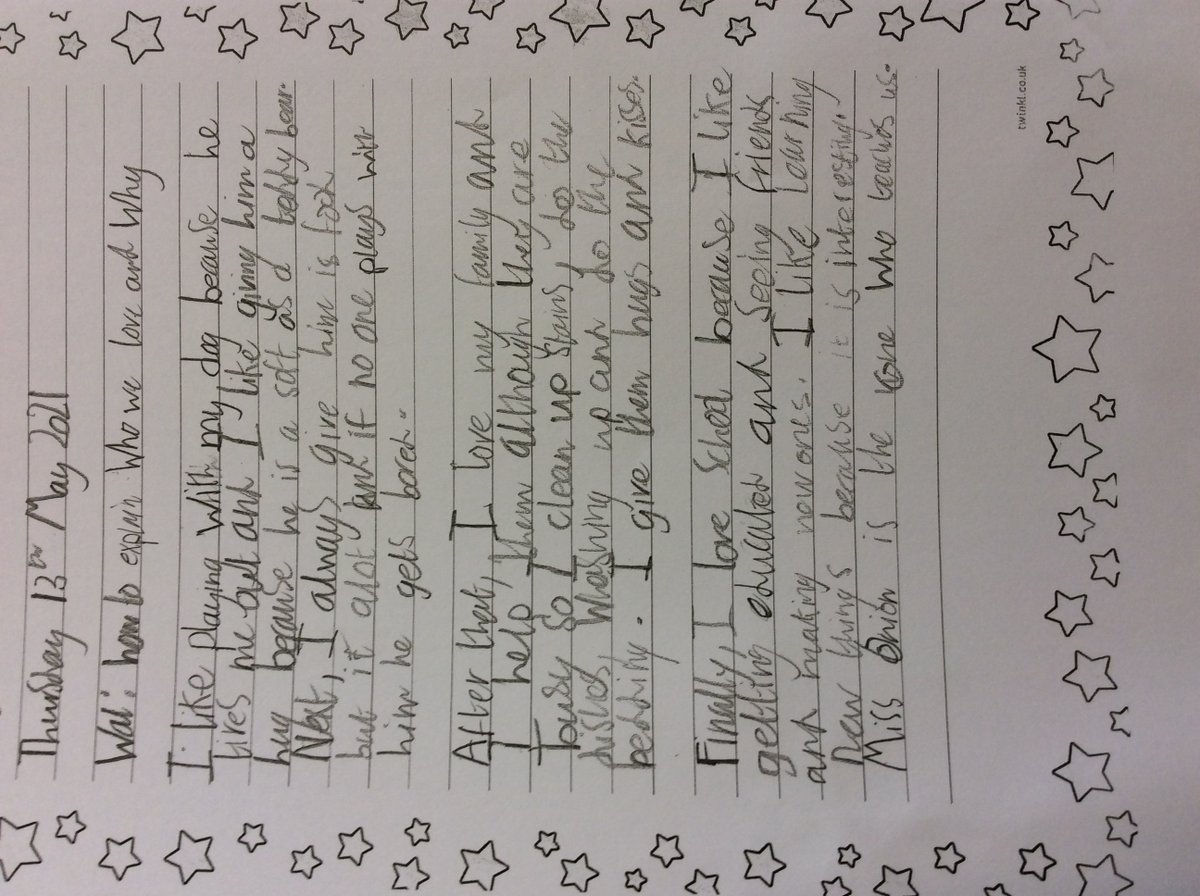 Thursday 13th May 2021
Wal: how to explain who we love and why
I like playing with my dog because he
lives me out and I like giving him a
hug because he is a soft as a teddy bear.
Next, I always give him is food
but it alot and if no one plays with
him he gets bored.
After that, I love my family and
I help them although they are
busy so I clean up stairs do the
dishes, whashing up and do the
bedding. I give them hugs and kisses.
Finally, I love school because I like
getting educated and seeing friends
and making new ones. I like learning
new things because it is interesting.
Miss Onion is the one who teaches us.
twinkl.co.uk